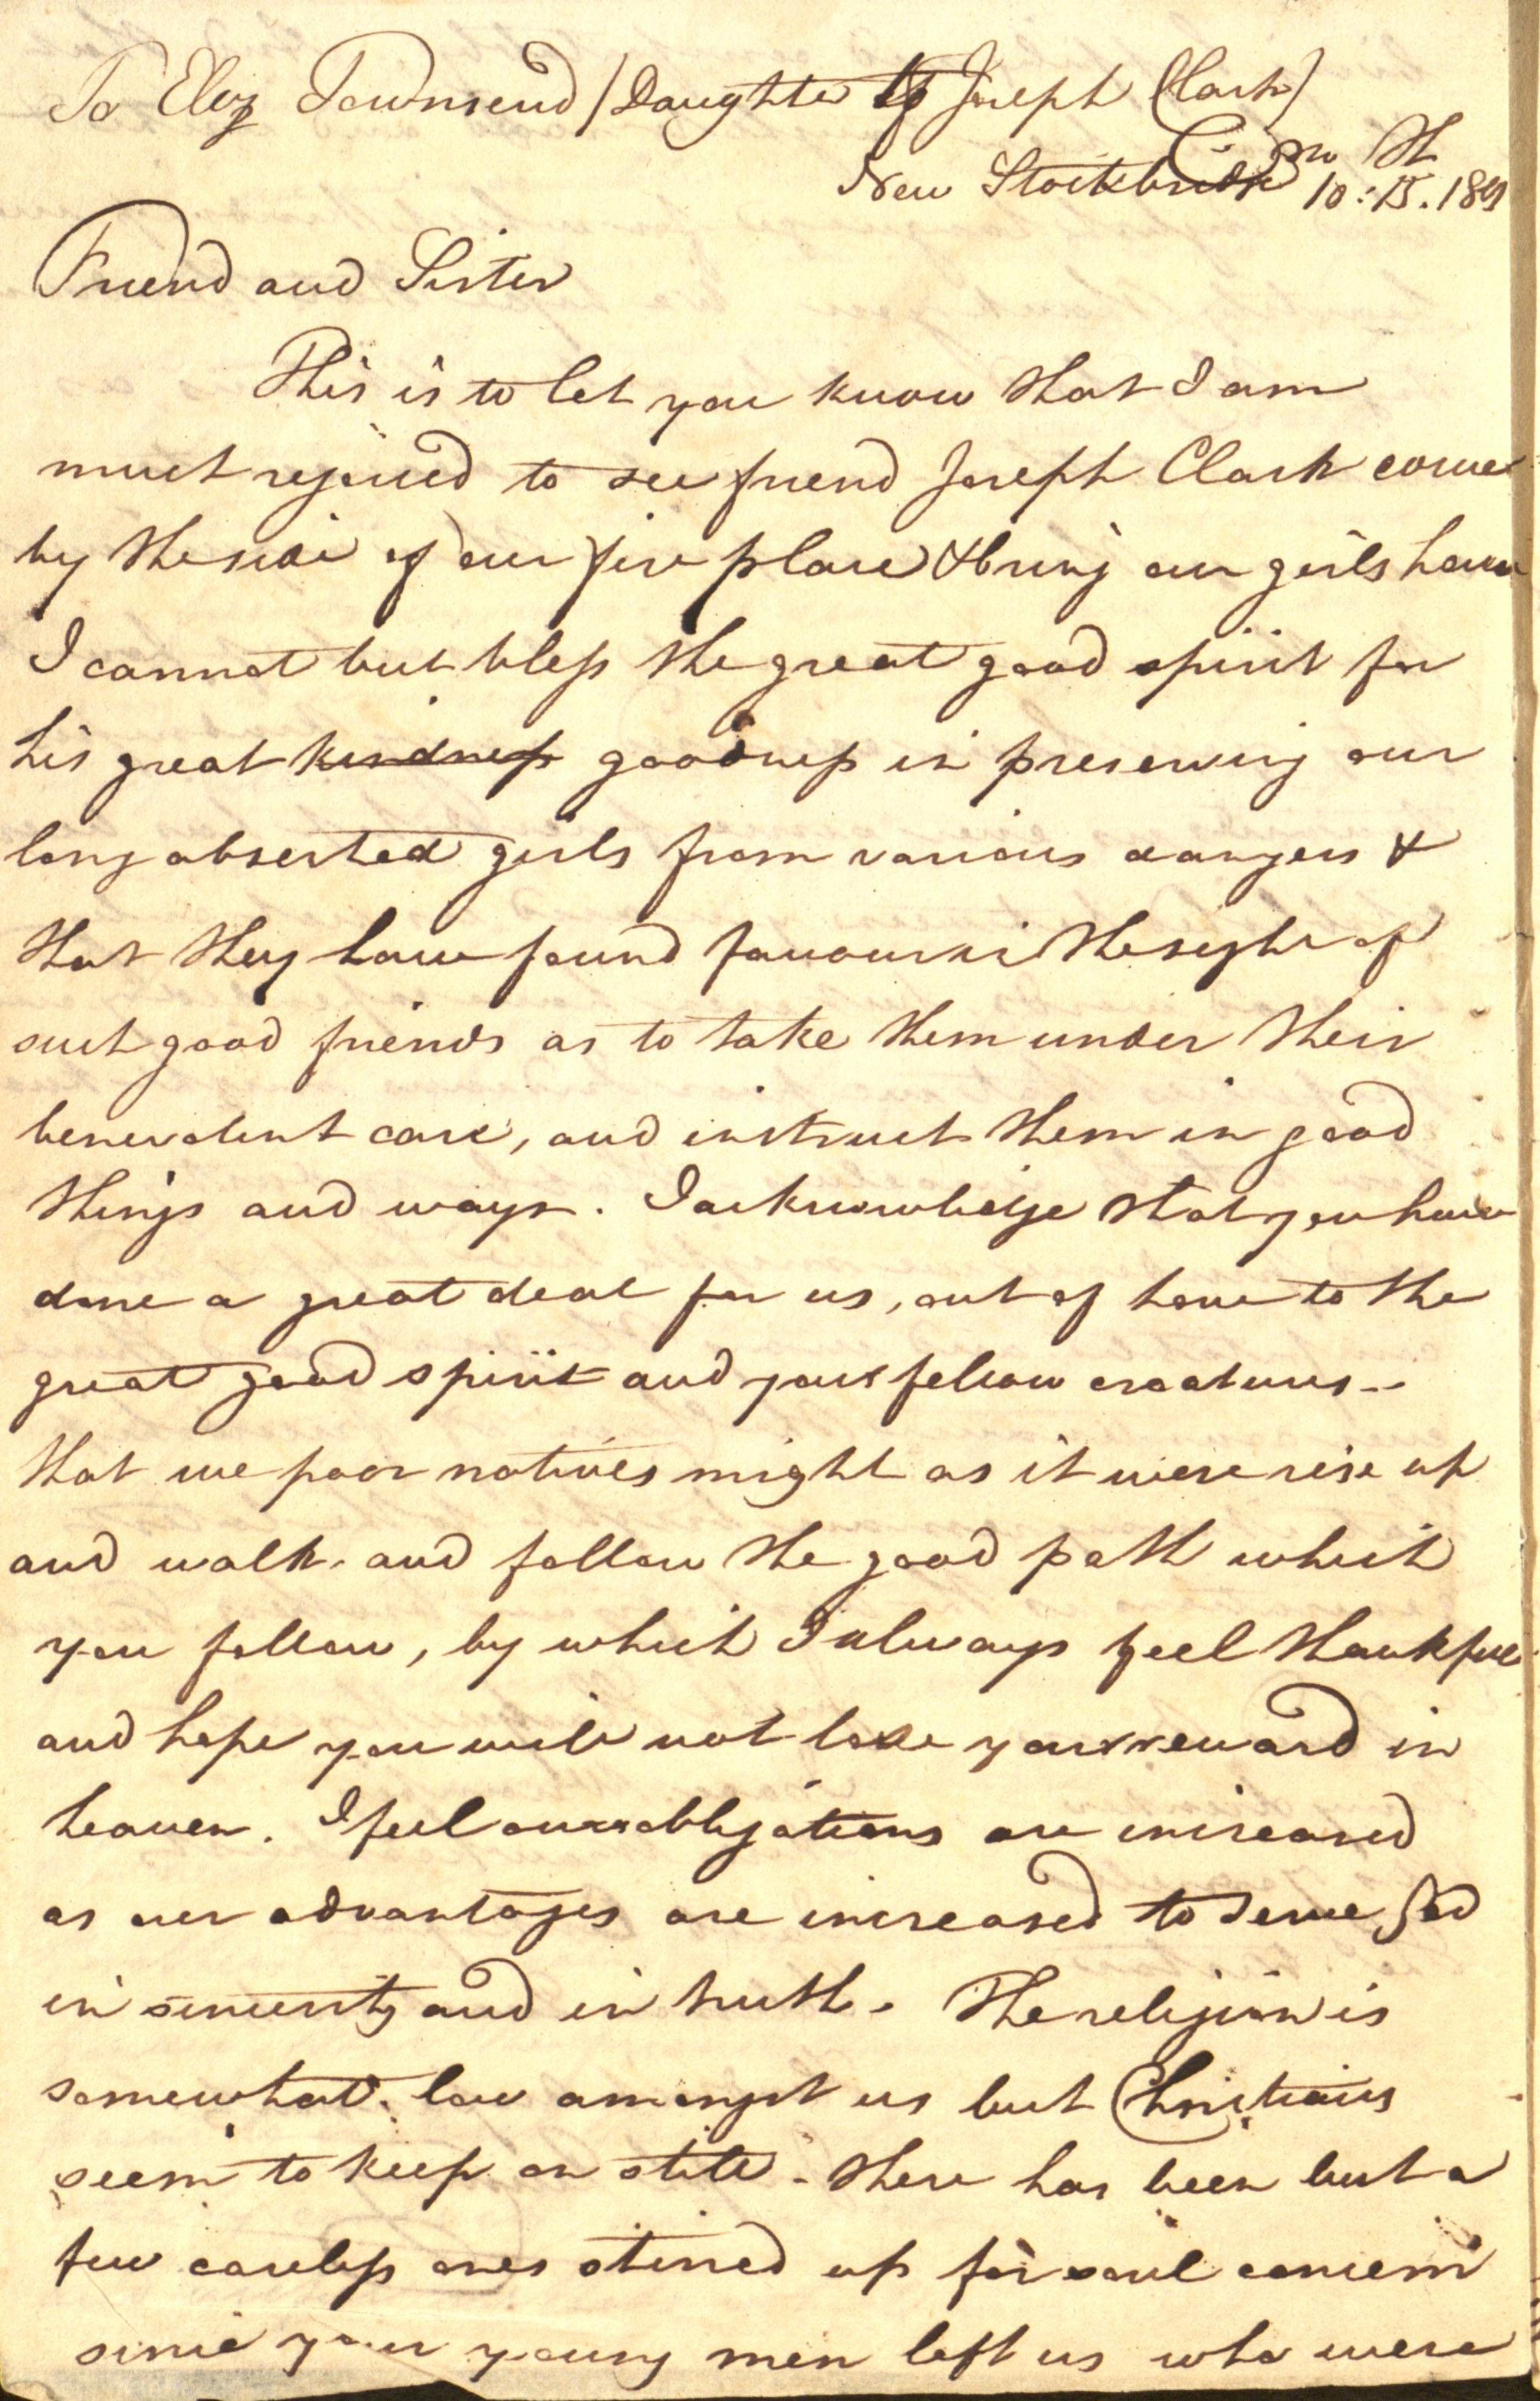 To Eliz Townsend (Daughter of Joseph Clark)
New Stockbridge 10 mo: 15th. 1801
Friend and Sister
This is to let you know that I am
much rejoiced to see friend Joseph Clark come
by the side of our fire place & bring our girls home
I cannot but bless the great good spirit for
his great kindness goodness in preserving our
long absented girls from various dangers &
that they have found favour in the sight of
such good friends as to take them under their
benevolent care, and instruct them in good
things and ways. I acknowledge that you have
done a great deal for us, out of love to the
great good spirit and your fellow creatures--
that we poor natives might as it were rise up
and walk. and follow the good path which
you follow, by which I always feel thankful
and hope you will not lose your reward in
heaven. I feel our obligations are increased
as our advantages are increased to serve God
in sincerity and in truth. The religion is
somewhat low amongst us but Christians
seem to keep on still. there has been but a
few careless ones stirred up for soul concern
since your young men left us who were